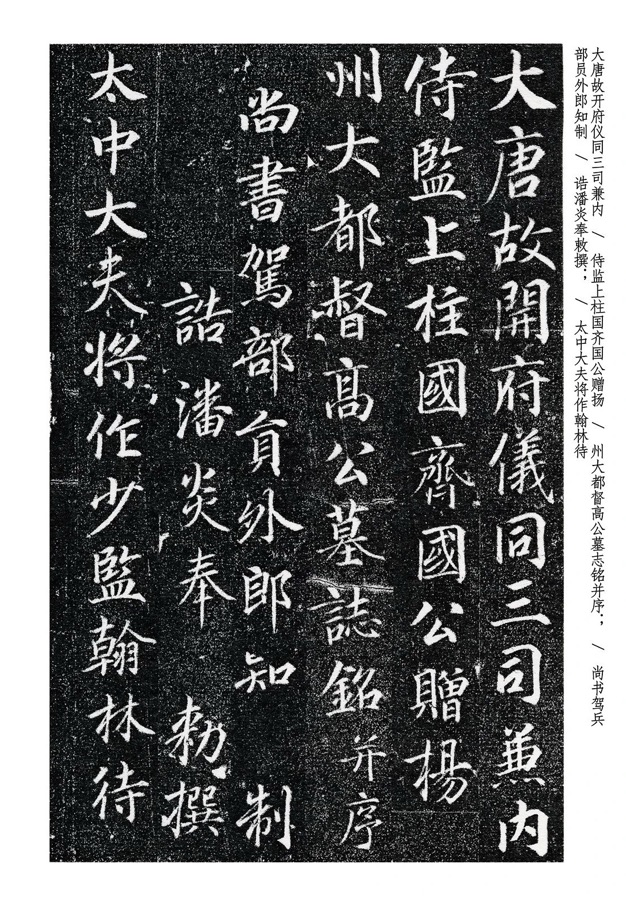 大唐故开府仪同三司兼内 / 侍监上柱国齐国公赠扬 / 州大都督高公墓志铭并序; / 尚书驾兵
部员外郎知制 / 诰潘炎奉敕撰; / 太中大夫将作翰林待
大唐故開府儀同三司兼内
侍監上柱國齊國公贈楊
州大都督高公墓誌銘并序
尚書駕部員外郎知制
誥潘炎奉勅撰
太中大夫将作少監翰林待